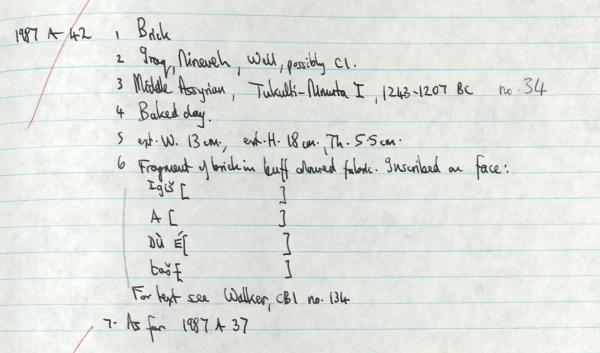 1987 A 42 1 Brick
2 Iraq, Nineveh, Well, possibly C1.
3 Middle Assyrian, Tukulti-Ninurta I, 1243-1207 BC no. 34
4 Baked clay.
5 ext. W. 13 cm., ext. H. 18 cm., Th. 5.5 cm.
6 Fragment of brick in buff coloured fabric. Inscribed on face:
Igiš [ ]
A [ ]
DÙ É[ ]
taš [ ]
For text see Walker, CBI no. 134
7. As for 1987 A 37